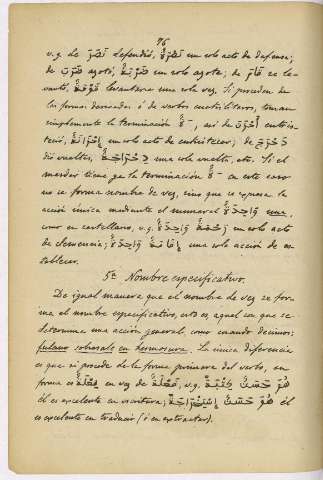 76
v.g. de نَصَرَ defendió, نَصْرَةٌ un solo acto de defensa;
de ضَرَبَ azotó, ضَرْبَةٌ un solo azote; de قَامَ se le-
vantó, قَوْمَةٌ levantarse una sola vez. Si proceden de
las formas derivadas ó de verbos cuatrilíteros, toman
simplemente la terminación ةٌ, así de
teció, un solo acto de entristecer; de دَحْرَجَ
dió vueltas, دَحْرَجَةٌ una sola vuelta, etc. Si el
masdar tiene ya la terminación ةٌ en este caso
no se forma nombre de vez, sino que se expresa la
acción única mediante el numeral وَاحِدَةٌ una,
como en castellano, v.g. رَحْمَةٌ وَاحِدَةٌ un solo acto
de clemencia; إِقَامَةٌ وَاحِدَةٌ una sola acción de es-
tablecer.
5º Nombre especificativo.
De igual manera que el nombre de vez se for-
ma el nombre especificativo, esto es, aquel en que se
determina una acción general, como cuando decimos:
fulano sobresale en hermosura. La única diferencia
es que si procede de la forma primera del verbo, su
forma es فِعْلَةٌ en vez de فَعْلَةٌ, v.g. هُوَ حَسَنُ كِتْبَةٍ
él es excelente en escritura; هُوَ حَسَنُ él
es excelente en traducir (ó en extractar).